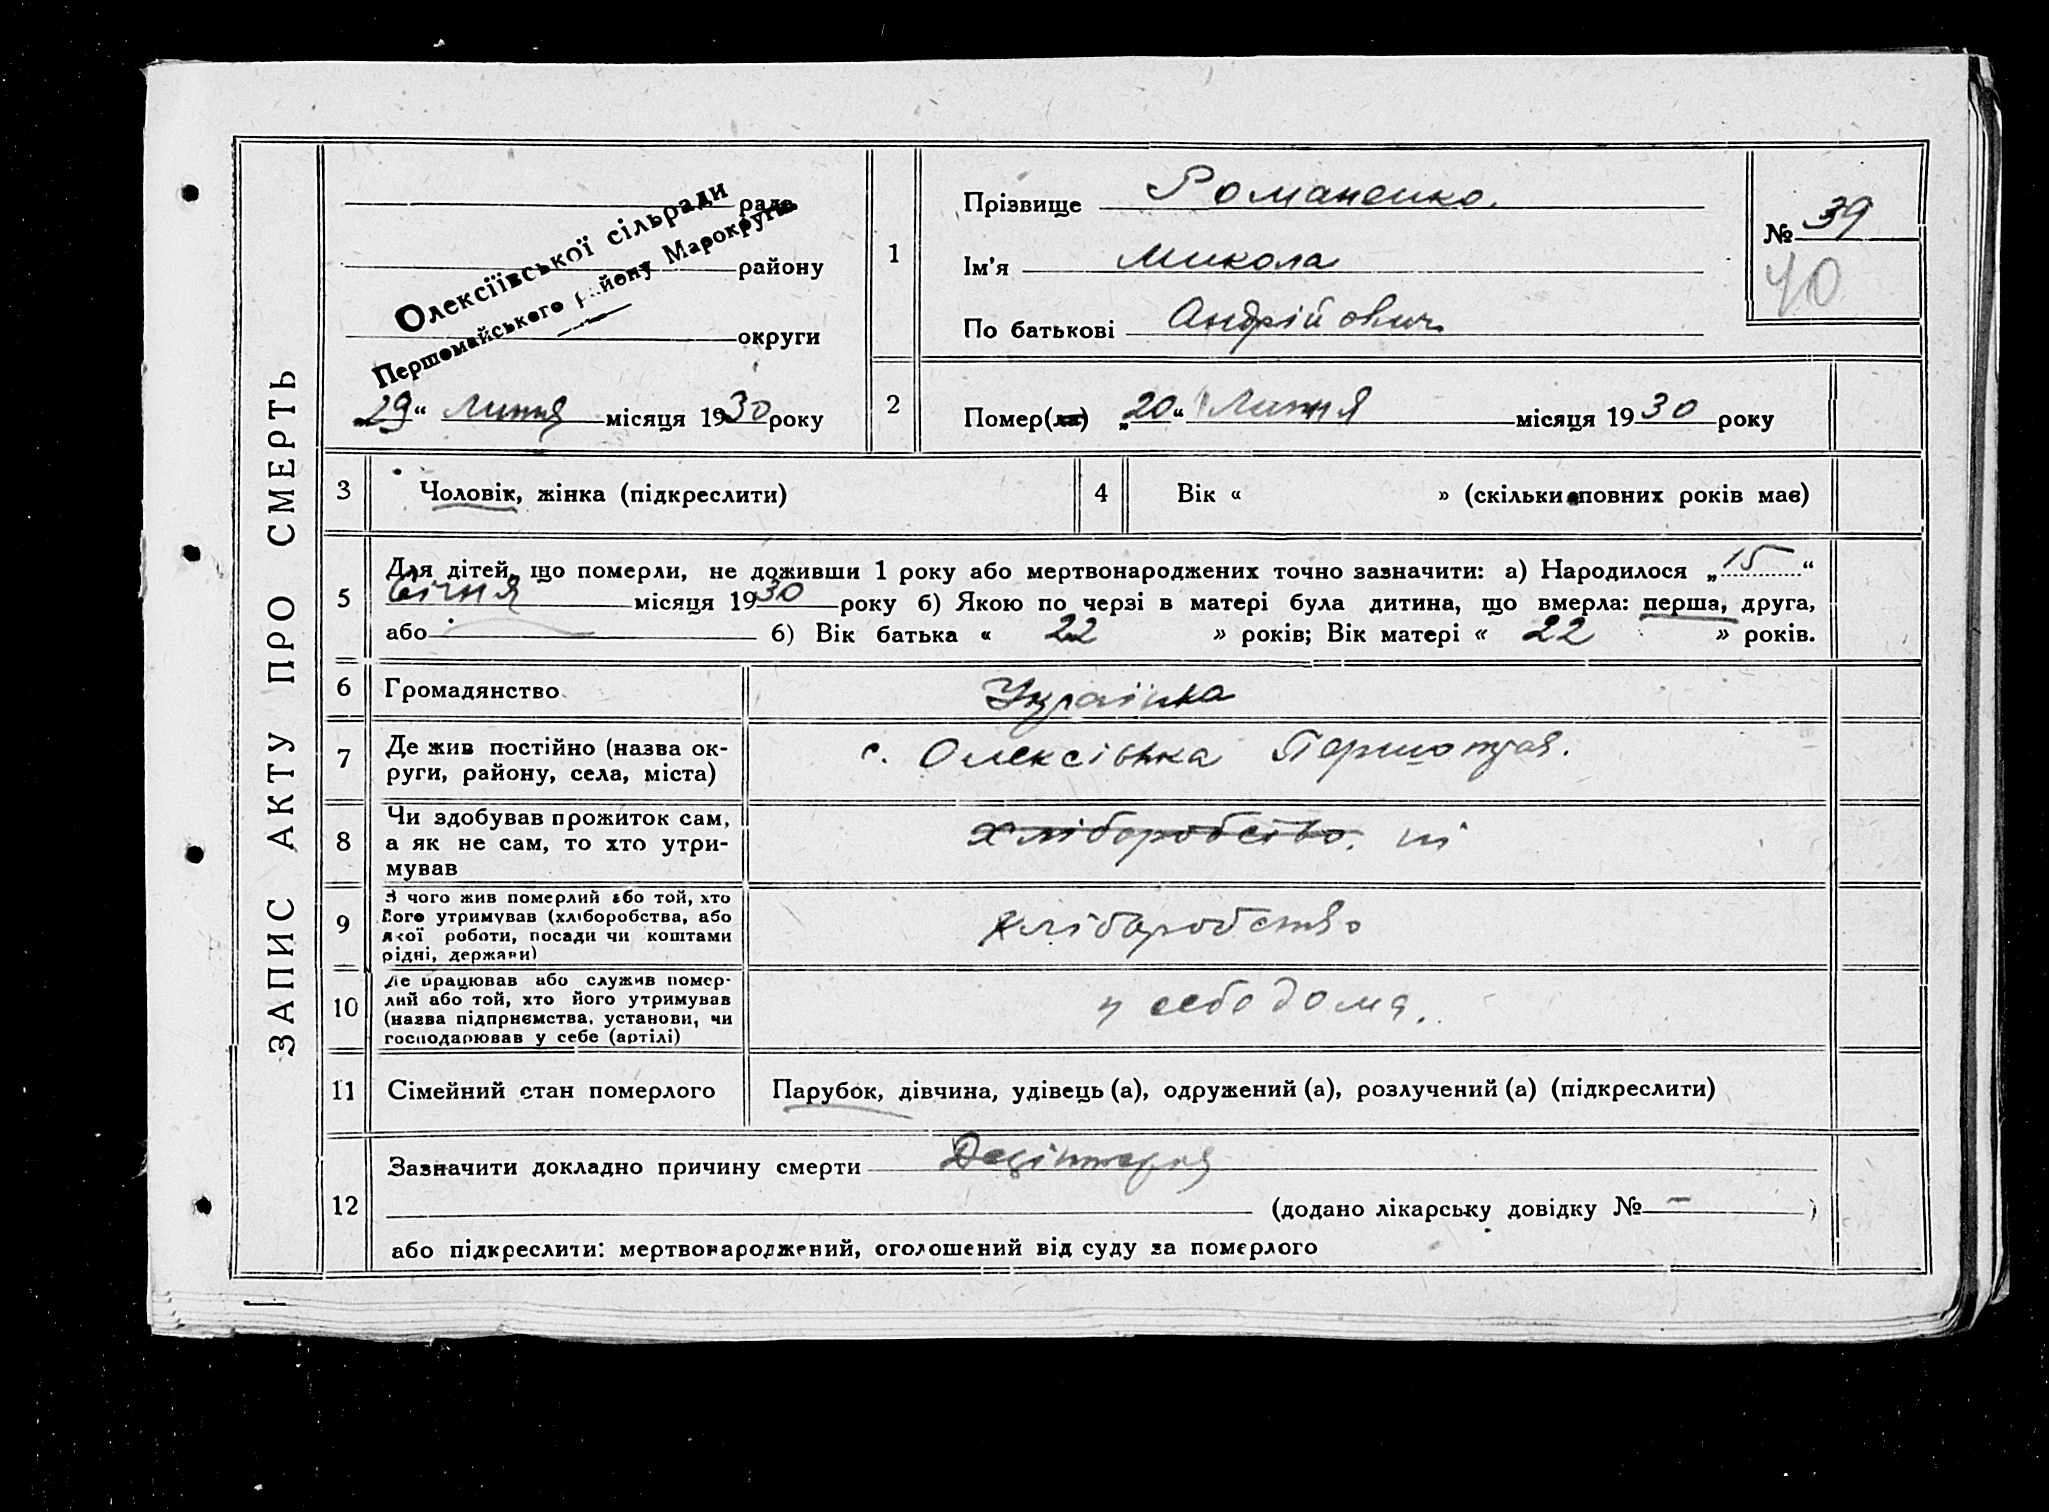 ЗАПИС АКТУ ПРО СМЕРТЬ
рада
району
округи
Олексіївської сільради
Першомайського району Марокруги
29 “ Липня місяця 1930 року
1
Прізвище Романенко.
Ім'я Микола
По батькові Андрійович
№ 39
40
2
Помер(ла) „20“ Липня місяця 1930 року
3
Чоловік, жінка (підкреслити)
4
Вік « » (скільки повних років має)
5
Для дітей, що померли, не доживши 1 року або мертвонароджених точно зазначити: а) Народилося „15“
Січня місяця 1930 року б) Якою по черзі в матері була дитина, що вмерла: перша, друга,
або б) Вік батька « 22 » років; Вік матері « 22 » років.
6
Громадянство
Українка
7
Де жив постійно (назва ок-
руги, району, села, міста)
с. Олексівка
8
Чи здобував прожиток сам,
а як не сам, то хто утри-
мував
хліборобство. ні
9
З чого жив померлий або той, хто
його утримував (хліборобства, або
якої роботи, посади чи коштами
рідні, держави)
хліборобство
10
Де працював або служив помер-
лий або той, хто його утримував
(назва підприємства, установи, чи
господарював у себе (артілі)
у себе дома.
11
Сімейний стан померлого
Парубок, дівчина, удівець (а), одружений (а), розлучений (а) (підкреслити)
12
Зазначити докладно причину смерти
(додано лікарську довідку № – )
або підкреслити: мертвонароджений, оголошений від суду за померлого